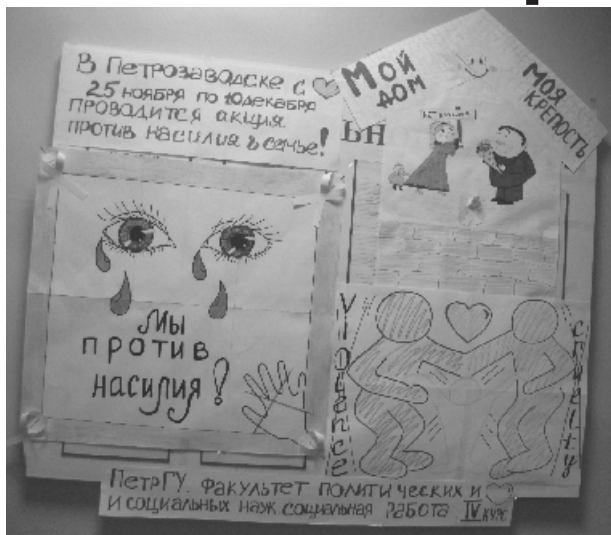 В Петрозаводске с
25 ноября по 10 декабря
проводится акция
против насилия в семье!
Мой
дом
Моя
крепость
ЬН
Мы
против
насилия!
Violence
cruelty
ПетрГУ. Факультет политических и
и социальных наук социальная работа IV курс